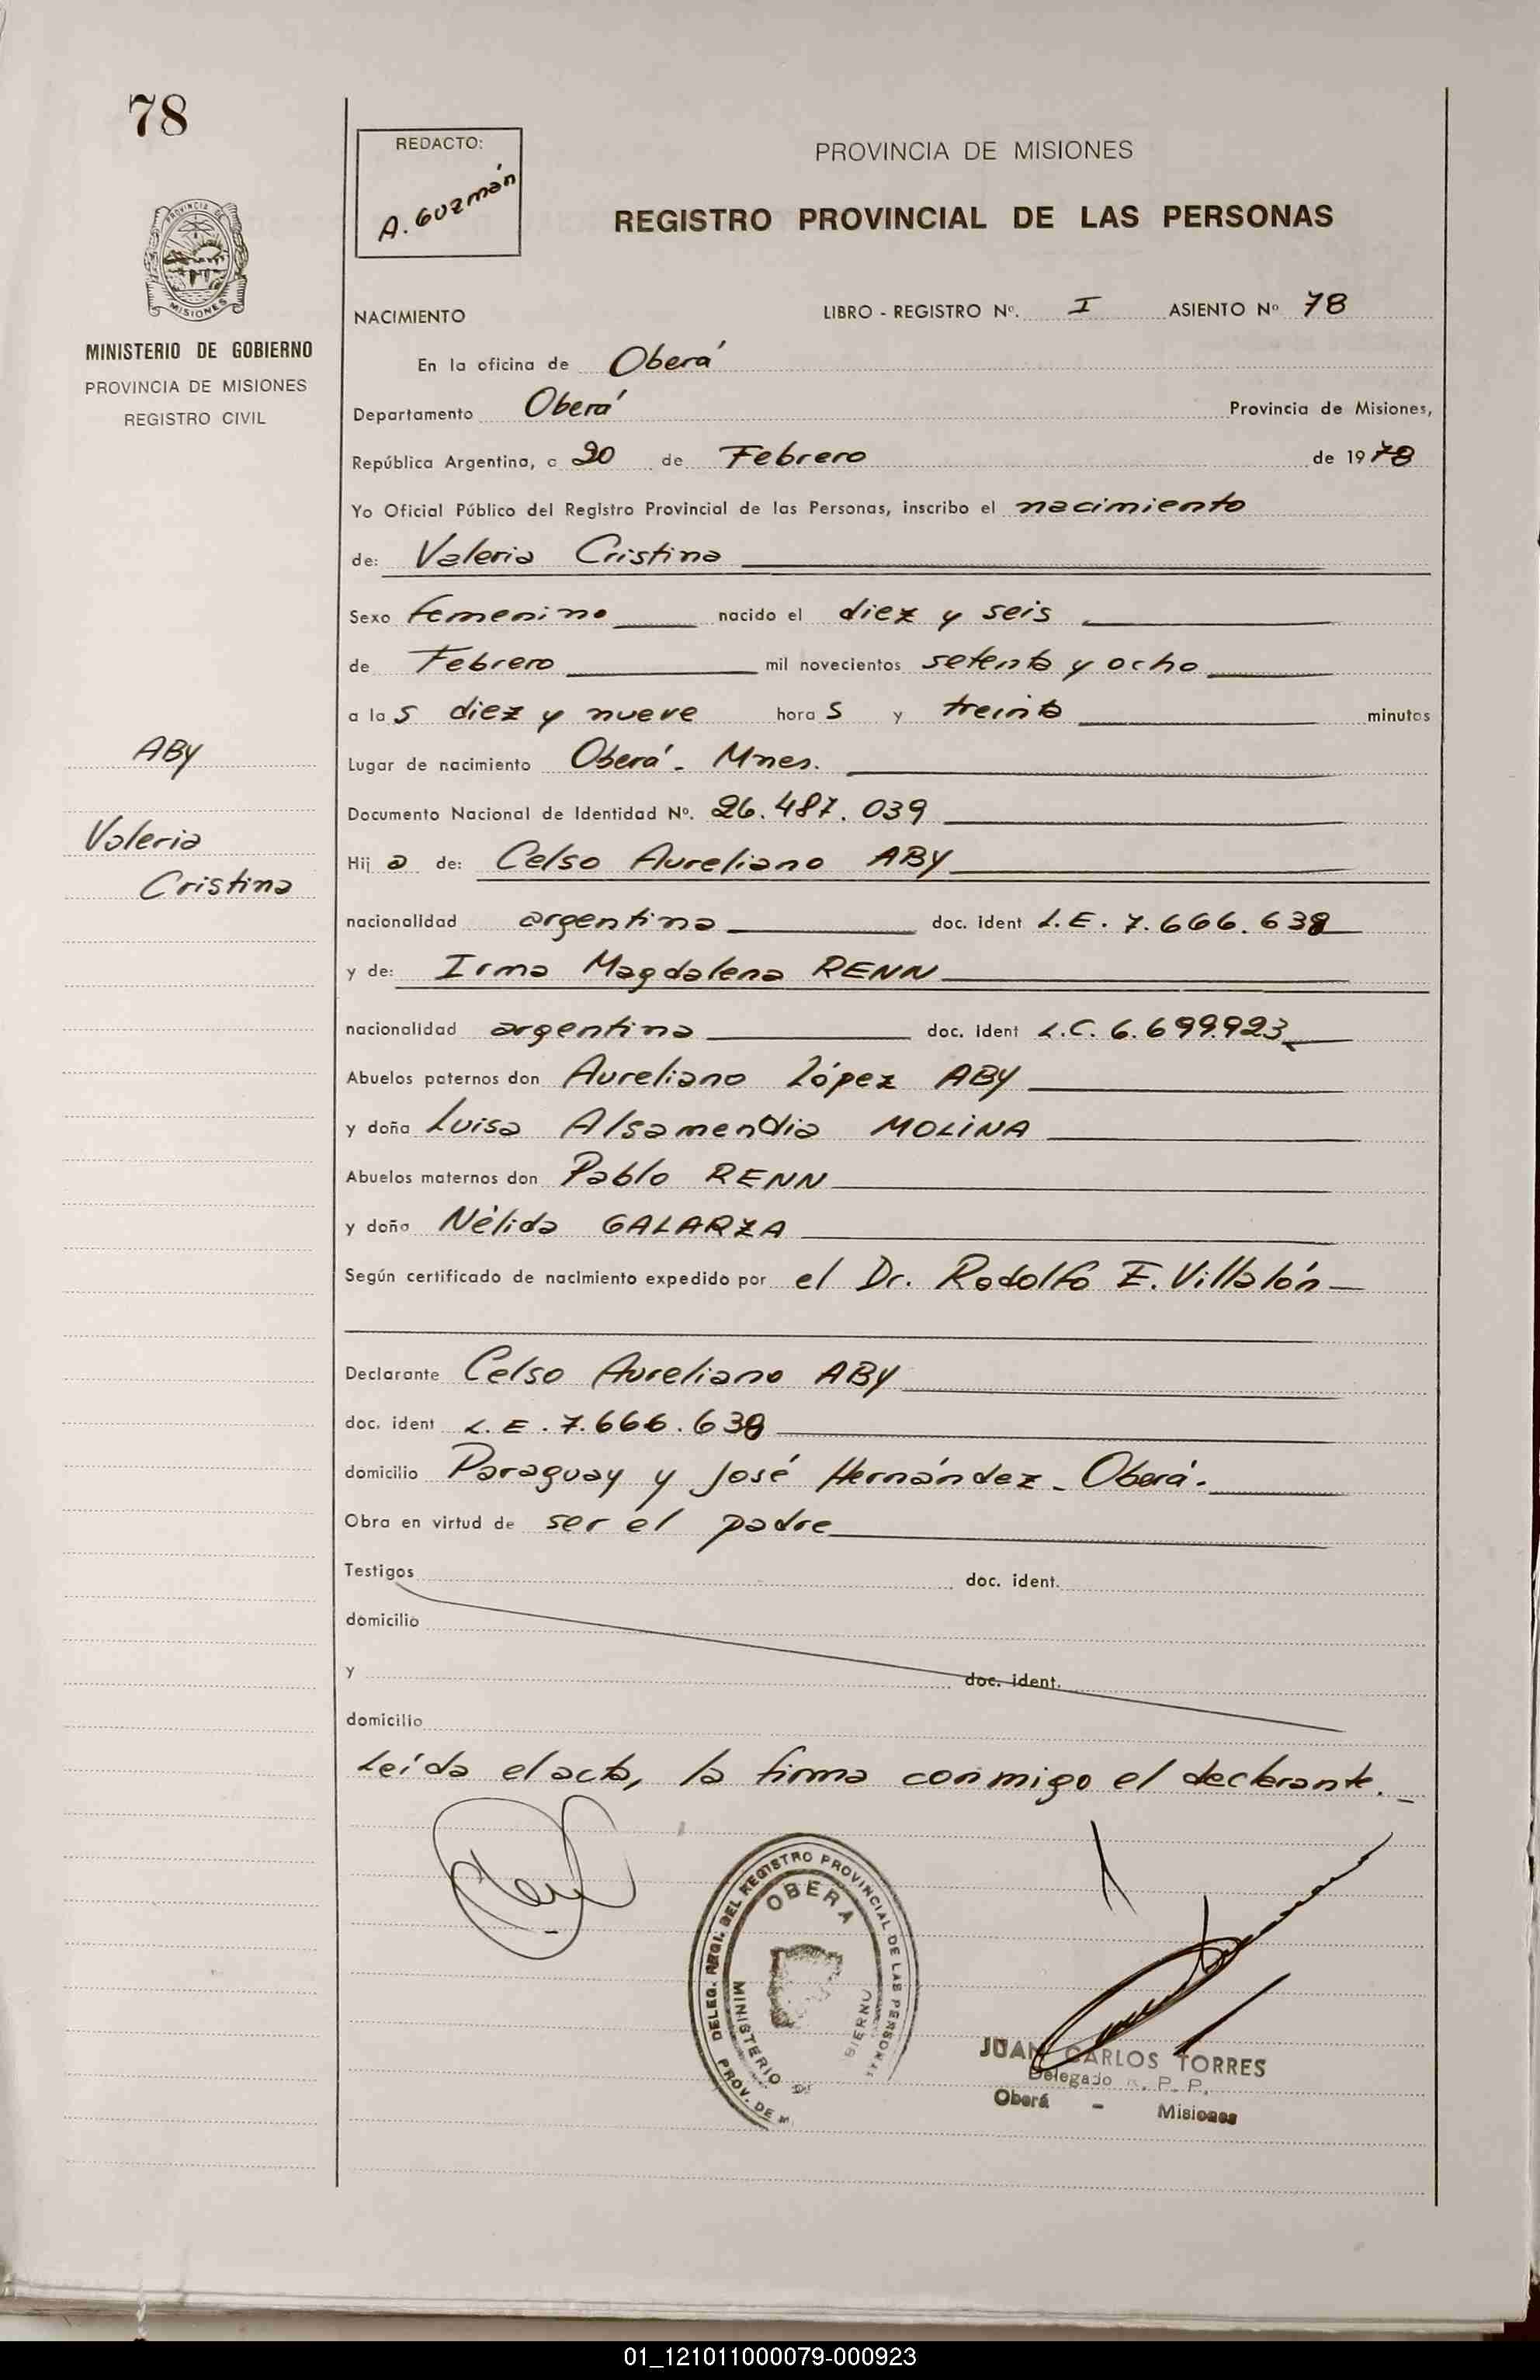 78
REDACTO:
A. Guzmán
PROVINCIA DE MISIONES
REGISTRO PROVINCIAL DE LAS PERSONAS
PROVINCIA DE
MISIONES
MINISTERIO DE GOBIERNO
PROVINCIA DE MISIONES
REGISTRO CIVIL
NACIMIENTO LIBRO - REGISTRO Nº. I ASIENTO Nº 78
En la oficina de Oberá
Departamento Oberá Provincia de Misiones,
República Argentina, a 20 de Febrero de 1978
Yo Oficial Público del Registro Provincial de las Personas, inscribo el nacimiento
de: Valeria Cristina
Sexo femenino nacido el diez y seis
de Febrero mil novecientos setenta y ocho
a las diez y nueve horas y treinta minutos
ABY
Lugar de nacimiento Oberá - Mnes.
Documento Nacional de Identidad Nº. 26.487.039
Valeria
Cristina
Hija de: Celso Aureliano ABY
nacionalidad argentina doc. ident L.E. 7.666.638
y de: Irma Magdalena RENN
nacionalidad argentina doc. ident L.C. 6.699.923
Abuelos paternos don Aureliano López ABY
y doña Luisa Alsamendia MOLINA
Abuelos maternos don Pablo RENN
y doña Nélida GALARZA
Según certificado de nacimiento expedido por el Dr. Rodolfo E. Villalón
Declarante Celso Aureliano ABY
doc. ident L.E. 7.666.638
domicilio Paraguay y José Hernández - Oberá.
Obra en virtud de ser el padre
Testigos doc. ident.
domicilio
y doc. ident.
domicilio
Leída el acta, la firma conmigo el declarante.-
DELEG. REGI. DEL REGISTRO PROVINCIAL DE LAS PERSONAS
OBERA
MINISTERIO
PROV. DE
JUAN CARLOS TORRES
Delegado R. P. P.
Oberá - Misiones
01_121011000079-000923